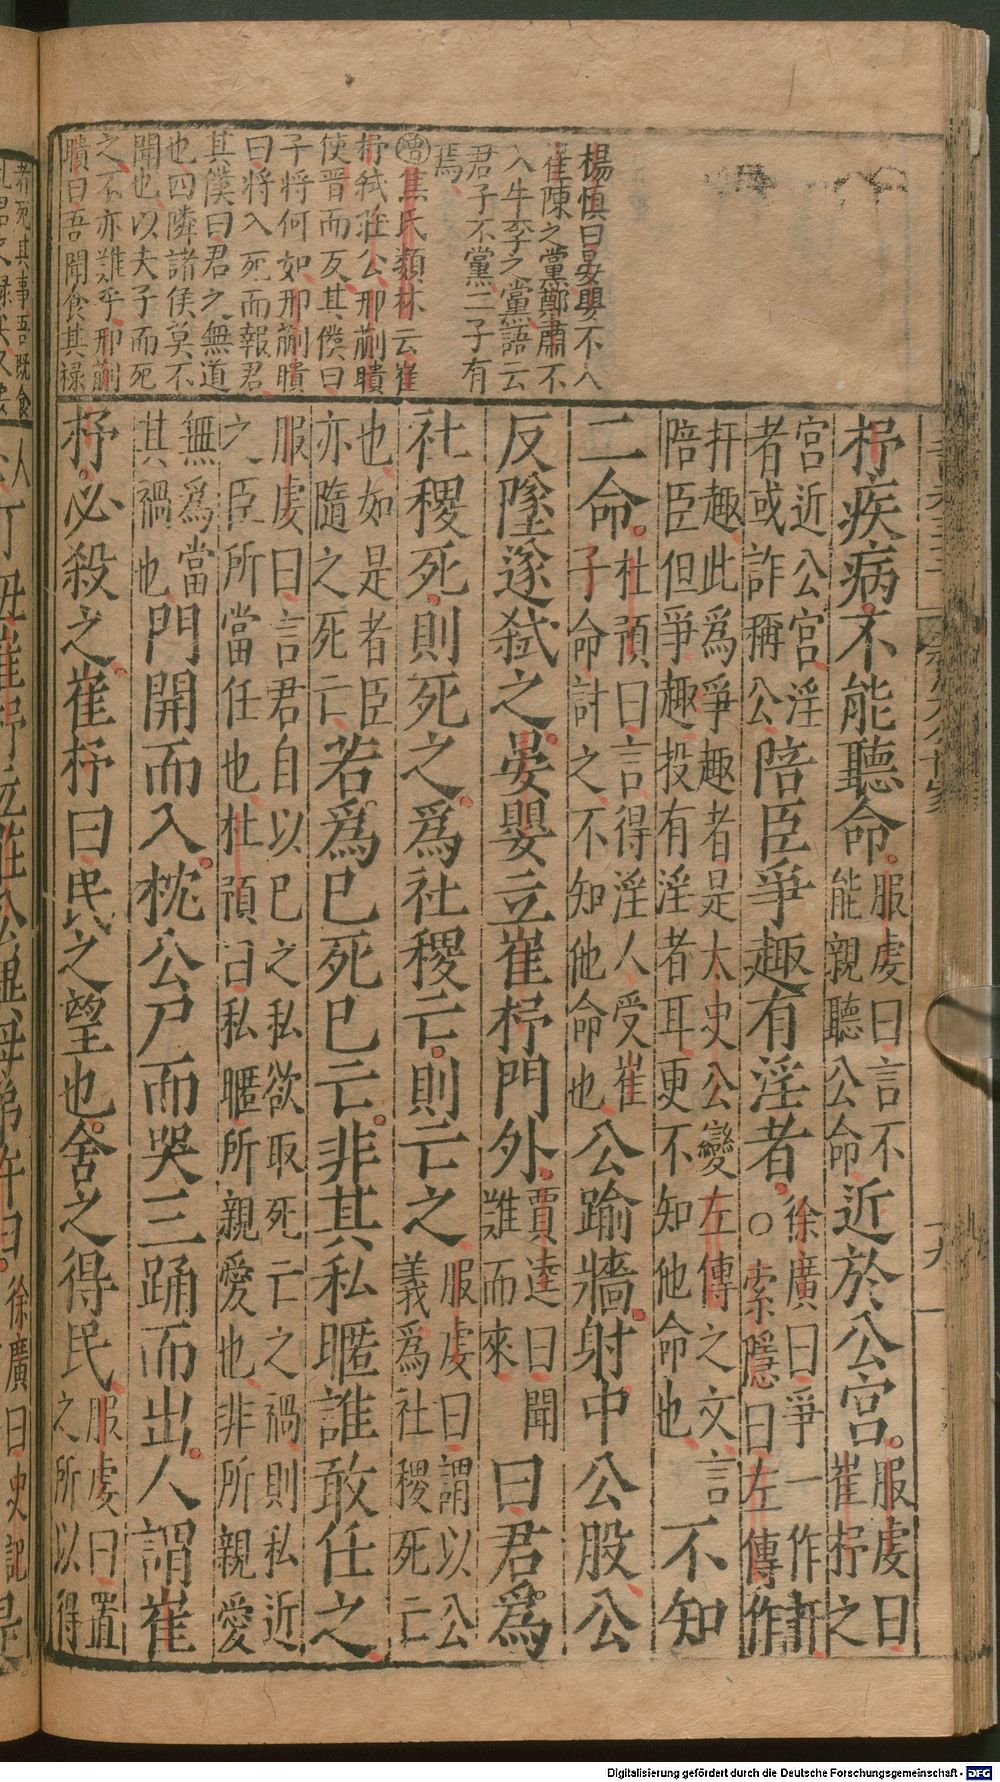 楊愼曰晏嬰不入
崔陳之黨鄭肅不
入牛李之黨語云
君子不黨二子有
焉
增焦氏類林云崔
杼弑莊公邢蒯聵
使晉而反其僕曰
子將何如邢蒯聵
曰將入死而報君
其僕曰君之無道
也四隣諸侯莫不
聞也以夫子而死
之不亦難乎邢蒯
聵曰吾聞食其禄
杼疾病不能聽命服虔曰言不能親聽公命近於公宮服虔曰崔杼之
宮近公宮淫者或詐稱公陪臣爭趣有淫者徐廣曰爭一作扞○索隱曰左傳作
扞趣此爲爭趣者是太史公變左傳之文言陪臣但爭趣投有淫者耳更不知他命也不知
二命杜預曰言得淫人受崔子命討之不知他命也公踰牆射中公股公
反墜遂弑之晏嬰立崔杼門外賈逵曰聞難而來曰君爲
社稷死則死之爲社稷亡則亡之服虔曰謂以公義爲社稷死亡
也如是者臣亦隨之死亡若爲己死己亡非其私暱誰敢任之
服虔曰言君自以己之私欲取死亡之禍則私近之臣所當任也杜預曰私暱所親愛也非所親愛
無爲當其禍也門開而入枕公尸而哭三踊而出人謂崔
杼必殺之崔杼曰民之望也舍之得民服虔曰置之所以得
十九
Digitalisierung gefördert durch die Deutsche Forschungsgemeinschaft - DFG